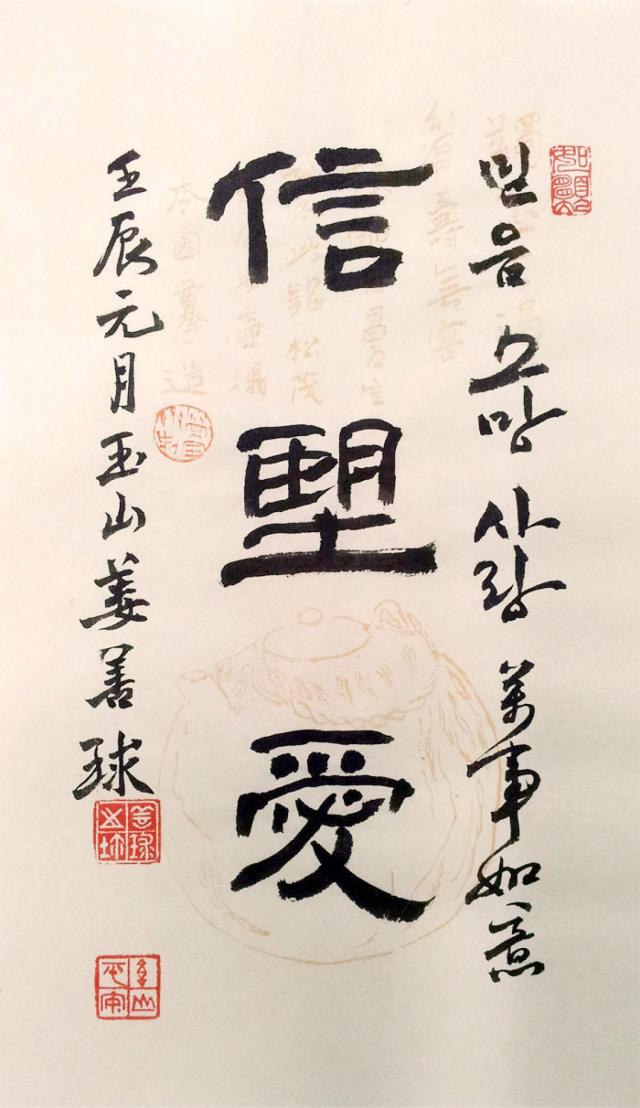 믿음 소망 사랑 萬事如意
信望愛
壬辰元月 玉山 姜善球